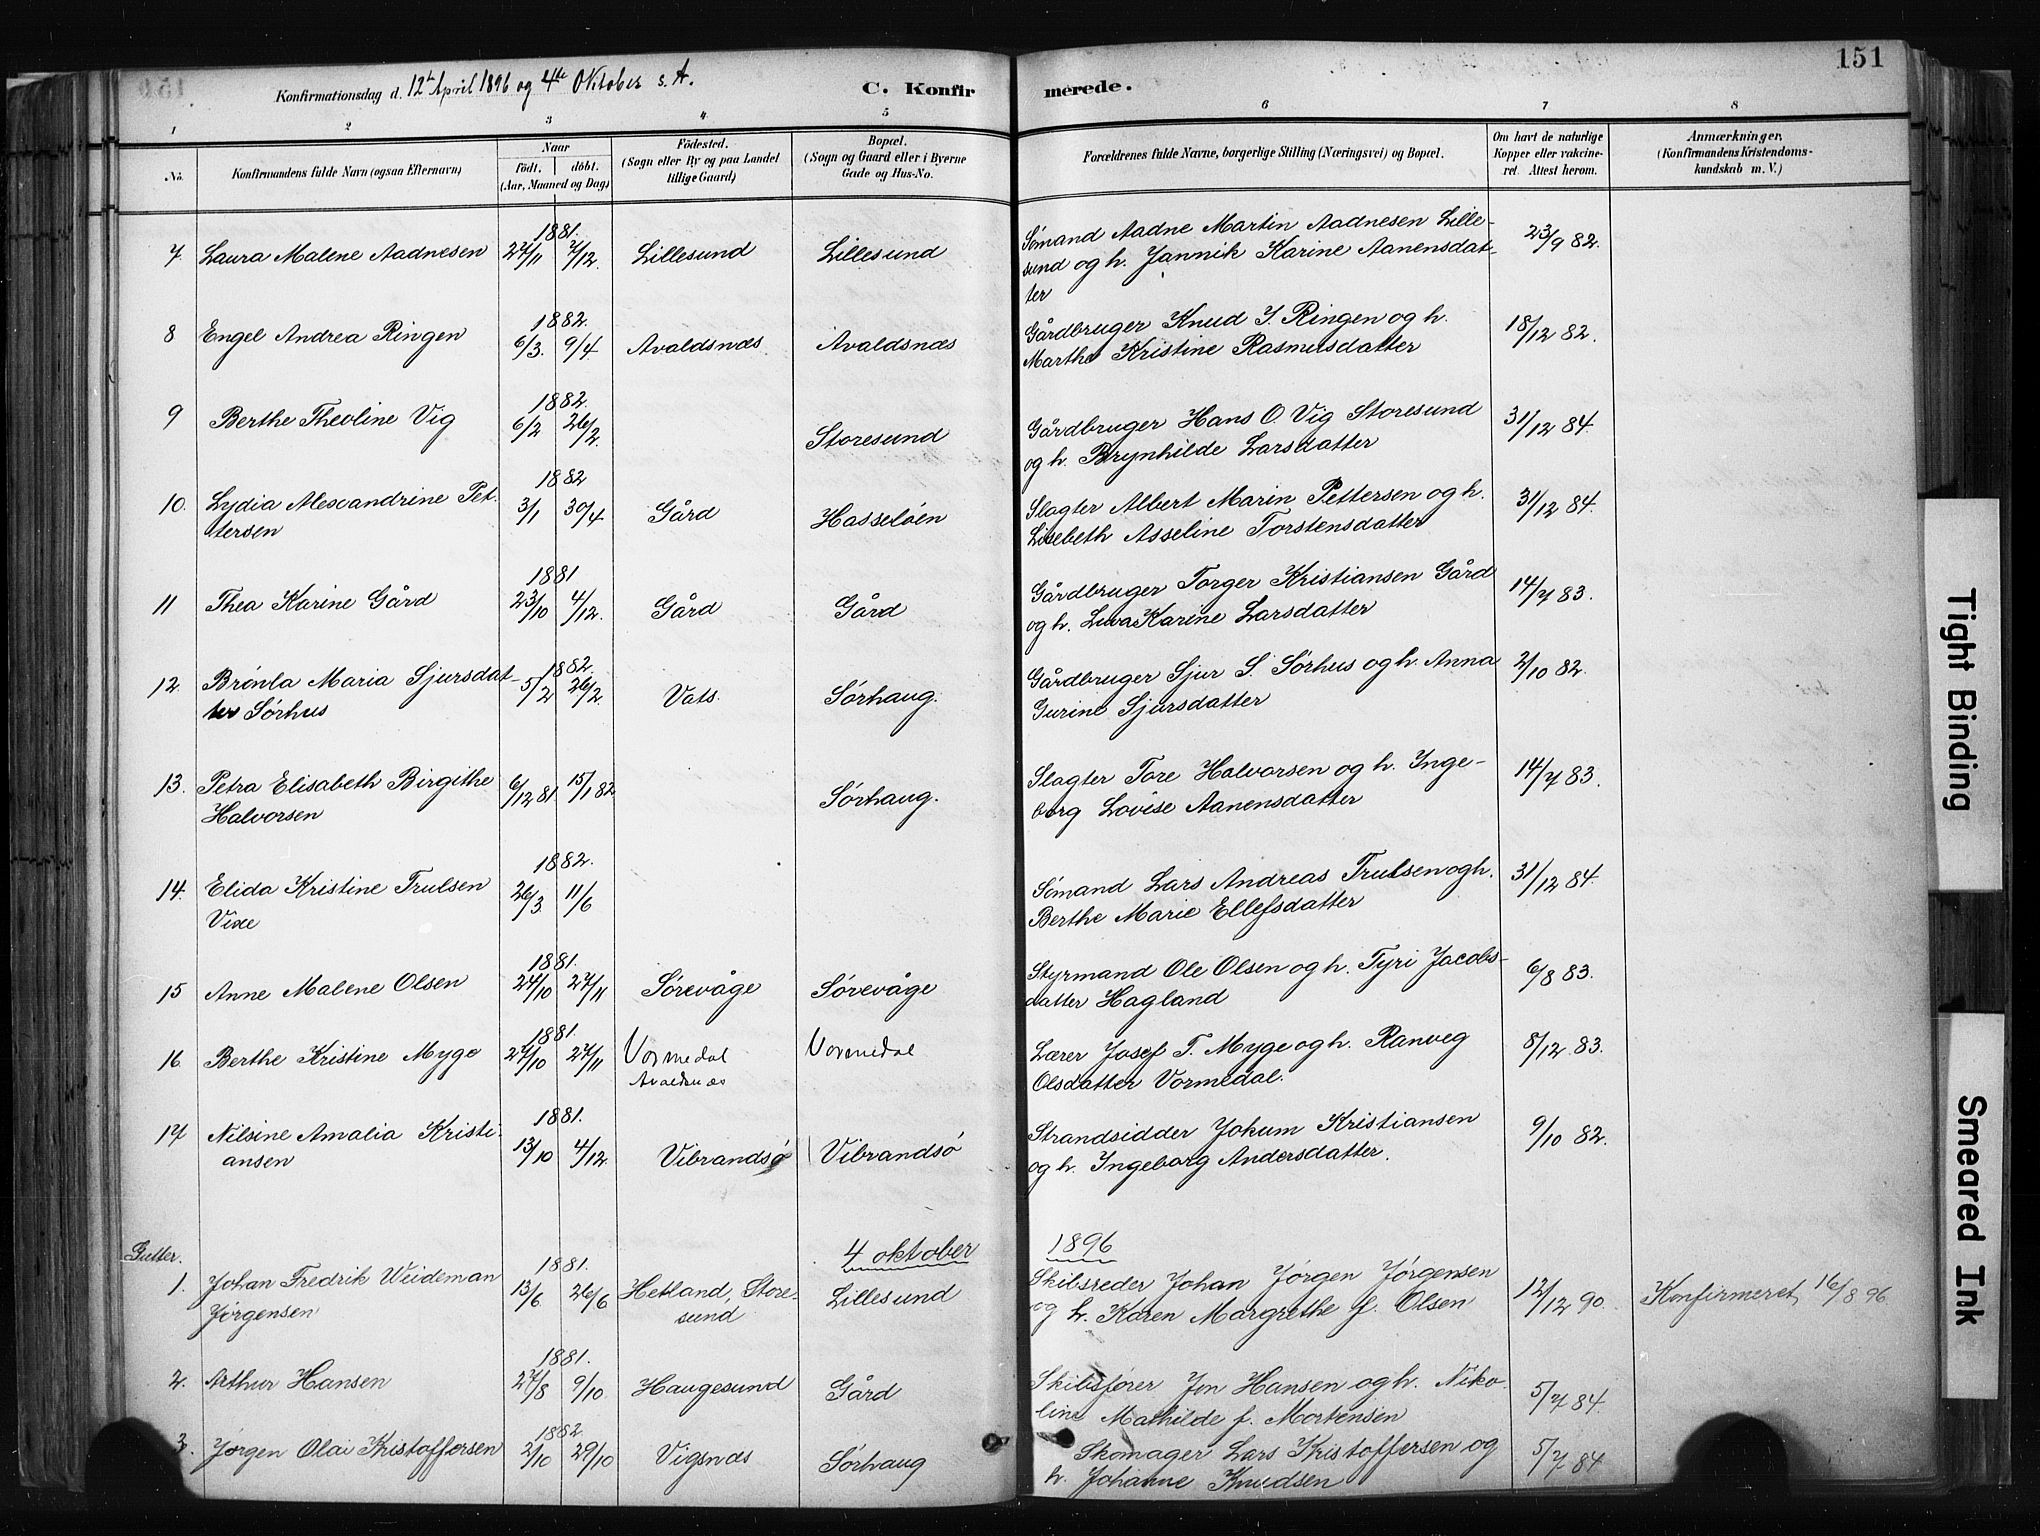 151
Konfirmationsdag d. 12te April 1896 og 4de Oktober s. A.
C. Konfirmerede.
1 2 3 4 5 6 7 8
No.
Konfirmandens fulde Navn (ogsaa Efternavn)
Naar
födt. döbt.
(Aar, Maaned og Dag)
Födested.
(Sogn eller By og paa Landet
tillige Gaard)
Bopæl.
(Sogn og Gaard eller i Byerne
Gade og Hus-No.
Forældrenes fulde Navne, borgerlige Stilling (Næringsvei) og Bopæl.
Om havt de naturlige
Kopper eller vakcine-
ret. Attest herom.
Anmærkninger.
(Konfirmandens Kristendoms-
kundskab m. V.)
1881.
7. Laura Malene Aadnesen 27/11 7/12. Lillesund Lillesund Sømand Aadne Martin Aadnesen Lille- 23/9 82.
sund og h. Jannik Karine Aanensdat-
ter
1882.
8 Engel Andrea Ringen 6/3. 9/4 Avaldsnæs. Avaldsnæs Gårdbruger Knud I. Ringen og h. 18/12 82.
Marthe Kristine Rasmusdatter
1882.
9 Berthe Theoline Vig 6/2 26/2. Storesund Gårdbruger Hans O. Vig Storesund 31/12 84.
og h. Brynhilde Larsdatter
1882
10. Lydia Alexandrine Pet- 3/1 30/4 Gård Hasseløen Slagter Albert Marin Pettersen og h. 31/12 84.
tersen Lisebeth Asseline Torstensdatter
1881
11 Thea Karine Gård 23/10 4/12. Gård Gård Gårdbruger Torger Kristiansen Gård 14/7 83.
og h. Karine Larsdatter
1882.
12. Maria Sjursdat- 5/2 26/2. Vats. Sørhaug. Gårdbruger Sjur S. Sørhus og h. Anna 2/10 82.
ter Sørhus Gurine Sjursdatter
13. Petra Elisabeth Birgithe 6/12 81 15/1 82 Sørhaug. Slagter Tore Halvorsen og h. Inge- 14/7 83.
Halvorsen borg Lovise Aanensdatter
1882.
14. Elida Kristine Trulsen 26/3 11/6 Sømand Lars Andreas Trulsen og h. 31/12 84.
Vixe Berthe Marie Ellefsdatter
1881.
15 Anne Malene Olsen 24/10 27/11 Sørevåge Sørevåge Styrmand Ole Olsen og h. Tyri Jacobs- 6/8 83.
datter Hagland
1881.
16. Berthe Kristine Myge 27/10 27/11 Vormedal Vormedal Lærer Josef T. Myge og h. Ranveg 8/12 83.
Avaldsnæs Olsdatter Vormedal.
1881.
17 Nilsine Amalia Kristi- 13/10 4/12 Vibrandsø Vibrandsø Strandsidder Jokum Kristiansen 9/10 82.
ansen og h. Ingeborg Andersdatter.
Gutter. 4 oktober 1896
1881.
1. Johan Fredrik Weideman 13/6 26/6 Hetland, Store- Lillesund Skibsreder Johan Jørgen Jørgensen 12/12 90. Konfirmeret 16/8 96
Jørgensen sund og h. Karen Margrethe f. Olsen
1881.
2. Arthur Hansen 27/8 9/10 Haugesund Gård Skibsfører Jon Hansen og h. Niko- 5/7 84
line Mathilde f. Mortensen
1882
3. Jørgen Olai Kristoffersen 2/10 29/10 Vigsnæs Sørhaug Skomager Lars Kristoffersen og 5/7 84
h. Johanne Knudsen
Tight Binding
Smeared Ink